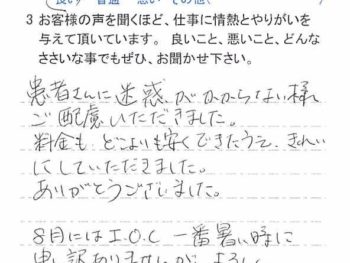 3 お客様の声を聞くほど、仕事に情熱とやりがいを
与えて頂いています。 良いこと、悪いこと、どんな
ささいな事でもぜひ、お聞かせ下さい。
患者さんに迷惑がかからない様
ご配慮いただきました。
料金も どこよりも安くできたうえ、きれい
にしていただきました。
ありがとうございました。
8月にはI.O.C 一番暑い時に
申し訳ありませんが よろし